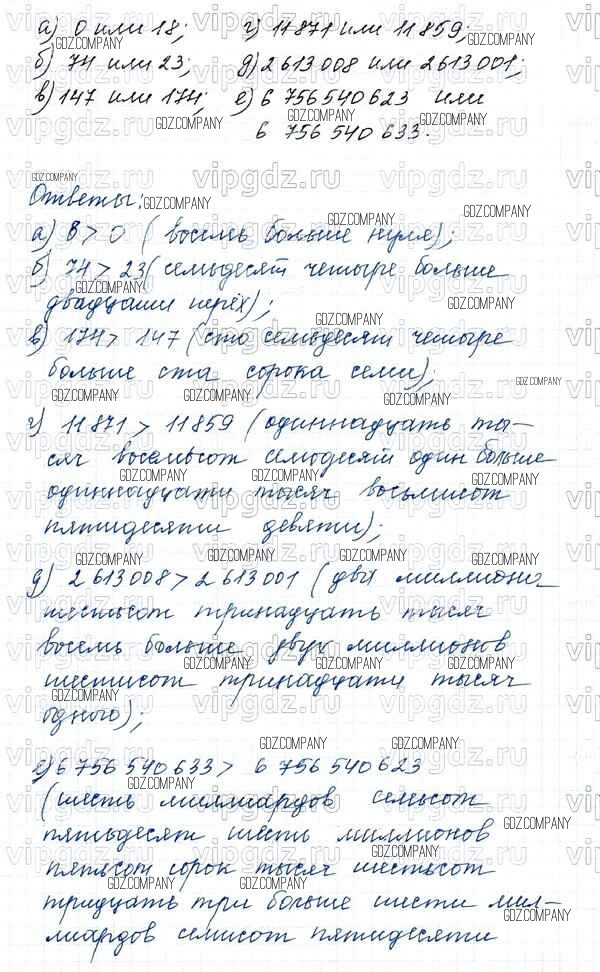 а) 0 или 18; г) 11 871 или 11 859;
б) 74 или 23; д) 2 613 008 или 2 613 001;
в) 147 или 174; е) 6 756 540 623 или
6 756 540 633.
Ответы:
а) 8 > 0 (восемь больше нуля);
б) 74 > 23 (семьдесят четыре больше
двадцати трёх);
в) 174 > 147 (сто семьдесят четыре
больше ста сорока семи);
г) 11 871 > 11 859 (одиннадцать ты-
сяч восемьсот семьдесят один больше
одиннадцати тысяч восьмисот
пятидесяти девяти);
д) 2 613 008 > 2 613 001 (два миллиона
шестьсот тринадцать тысяч
восемь больше двух миллионов
шестисот тринадцати тысяч
одного);
е) 6 756 540 633 > 6 756 540 623
(шесть миллиардов семьсот
пятьдесят шесть миллионов
пятьсот сорок тысяч шестьсот
тридцать три больше шести мил-
лиардов семисот пятидесяти